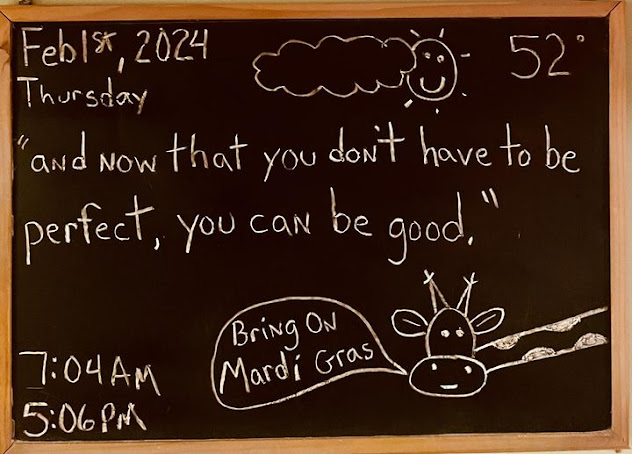 Feb 1st, 2024
Thursday
52°
"and now that you don't have to be
perfect, you can be good."
Bring On
Mardi Gras
7:04 AM
5:06 PM